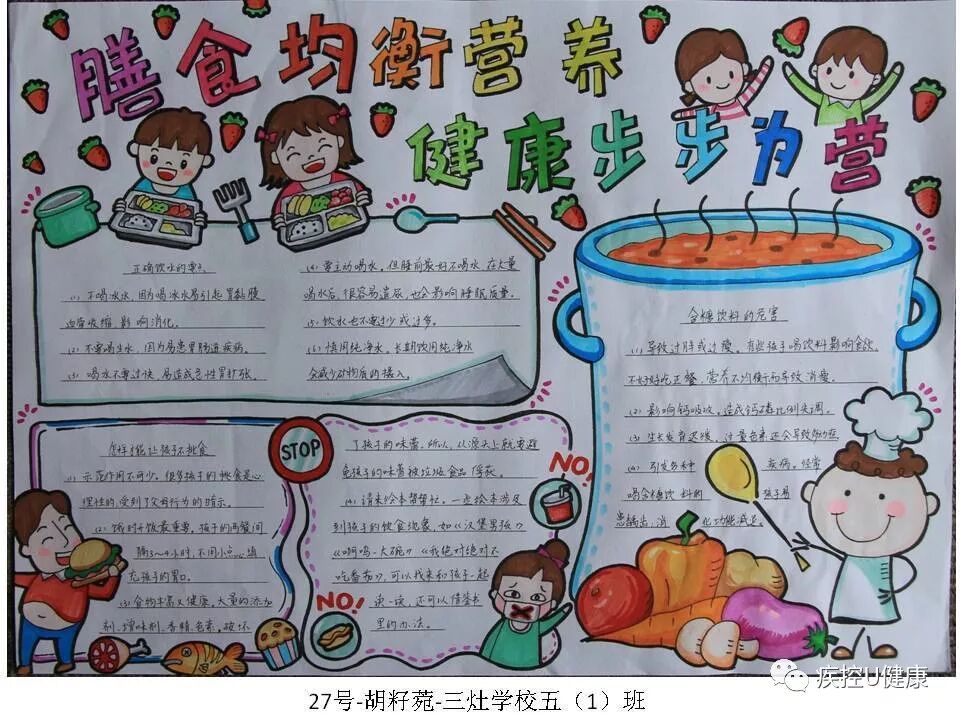 膳食均衡营养
健康步步为营
正确饮水的要点
(1) 不喝冰水,因为喝冰水易引起胃黏膜
血管收缩,影响消化。
(2) 不要喝生水,因为易患胃肠道疾病。
(3) 喝水不要过快,易造成急性胃扩张。
(4) 要主动喝水,但睡前最好不喝水,在大量
喝水后,很容易遗尿,也会影响睡眠质量。
(5) 饮水也不要过少或过多。
(6) 慎用纯净水。长期饮用纯净水
会减少矿物质的摄入。
含糖饮料的危害
(1) 导致过胖或过瘦。有些孩子喝饮料影响食欲,
不好好吃正餐,营养不均衡而导致消瘦。
(2) 影响钙吸收,造成钙磷比例失调。
(3) 生长发育迟缓,过量色素还会导致
(4) 引发多种 疾病。经常
喝含糖饮 料的 孩子易
消 化功能减
怎样才能让孩子不挑食
(1) 示范作用不可少。很多孩子的挑食是心
理性的,受到了父母行为的暗示。
(2) 饿时吃饭最重要。孩子的两餐间
隔3~4小时,不用小点心填
充孩子的胃口。
(3) 食物丰富又健康。大量的添加
剂、增味剂、香精、色素,破坏
STOP
了孩子的味蕾,所以,从源头上就要避
免孩子的味蕾被垃圾食品俘获。
(4) 请来绘本帮帮忙。一些绘本涉及
到孩子的饮食现象,如《汉堡男孩》
《啊呜一大碗》《我绝对绝对不
吃番茄》,可以找来和孩子一起
读一读,还可以借鉴书
里的办法。
NO!
NO!
疾控U健康
27号-胡籽菀-三灶学校五（1）班